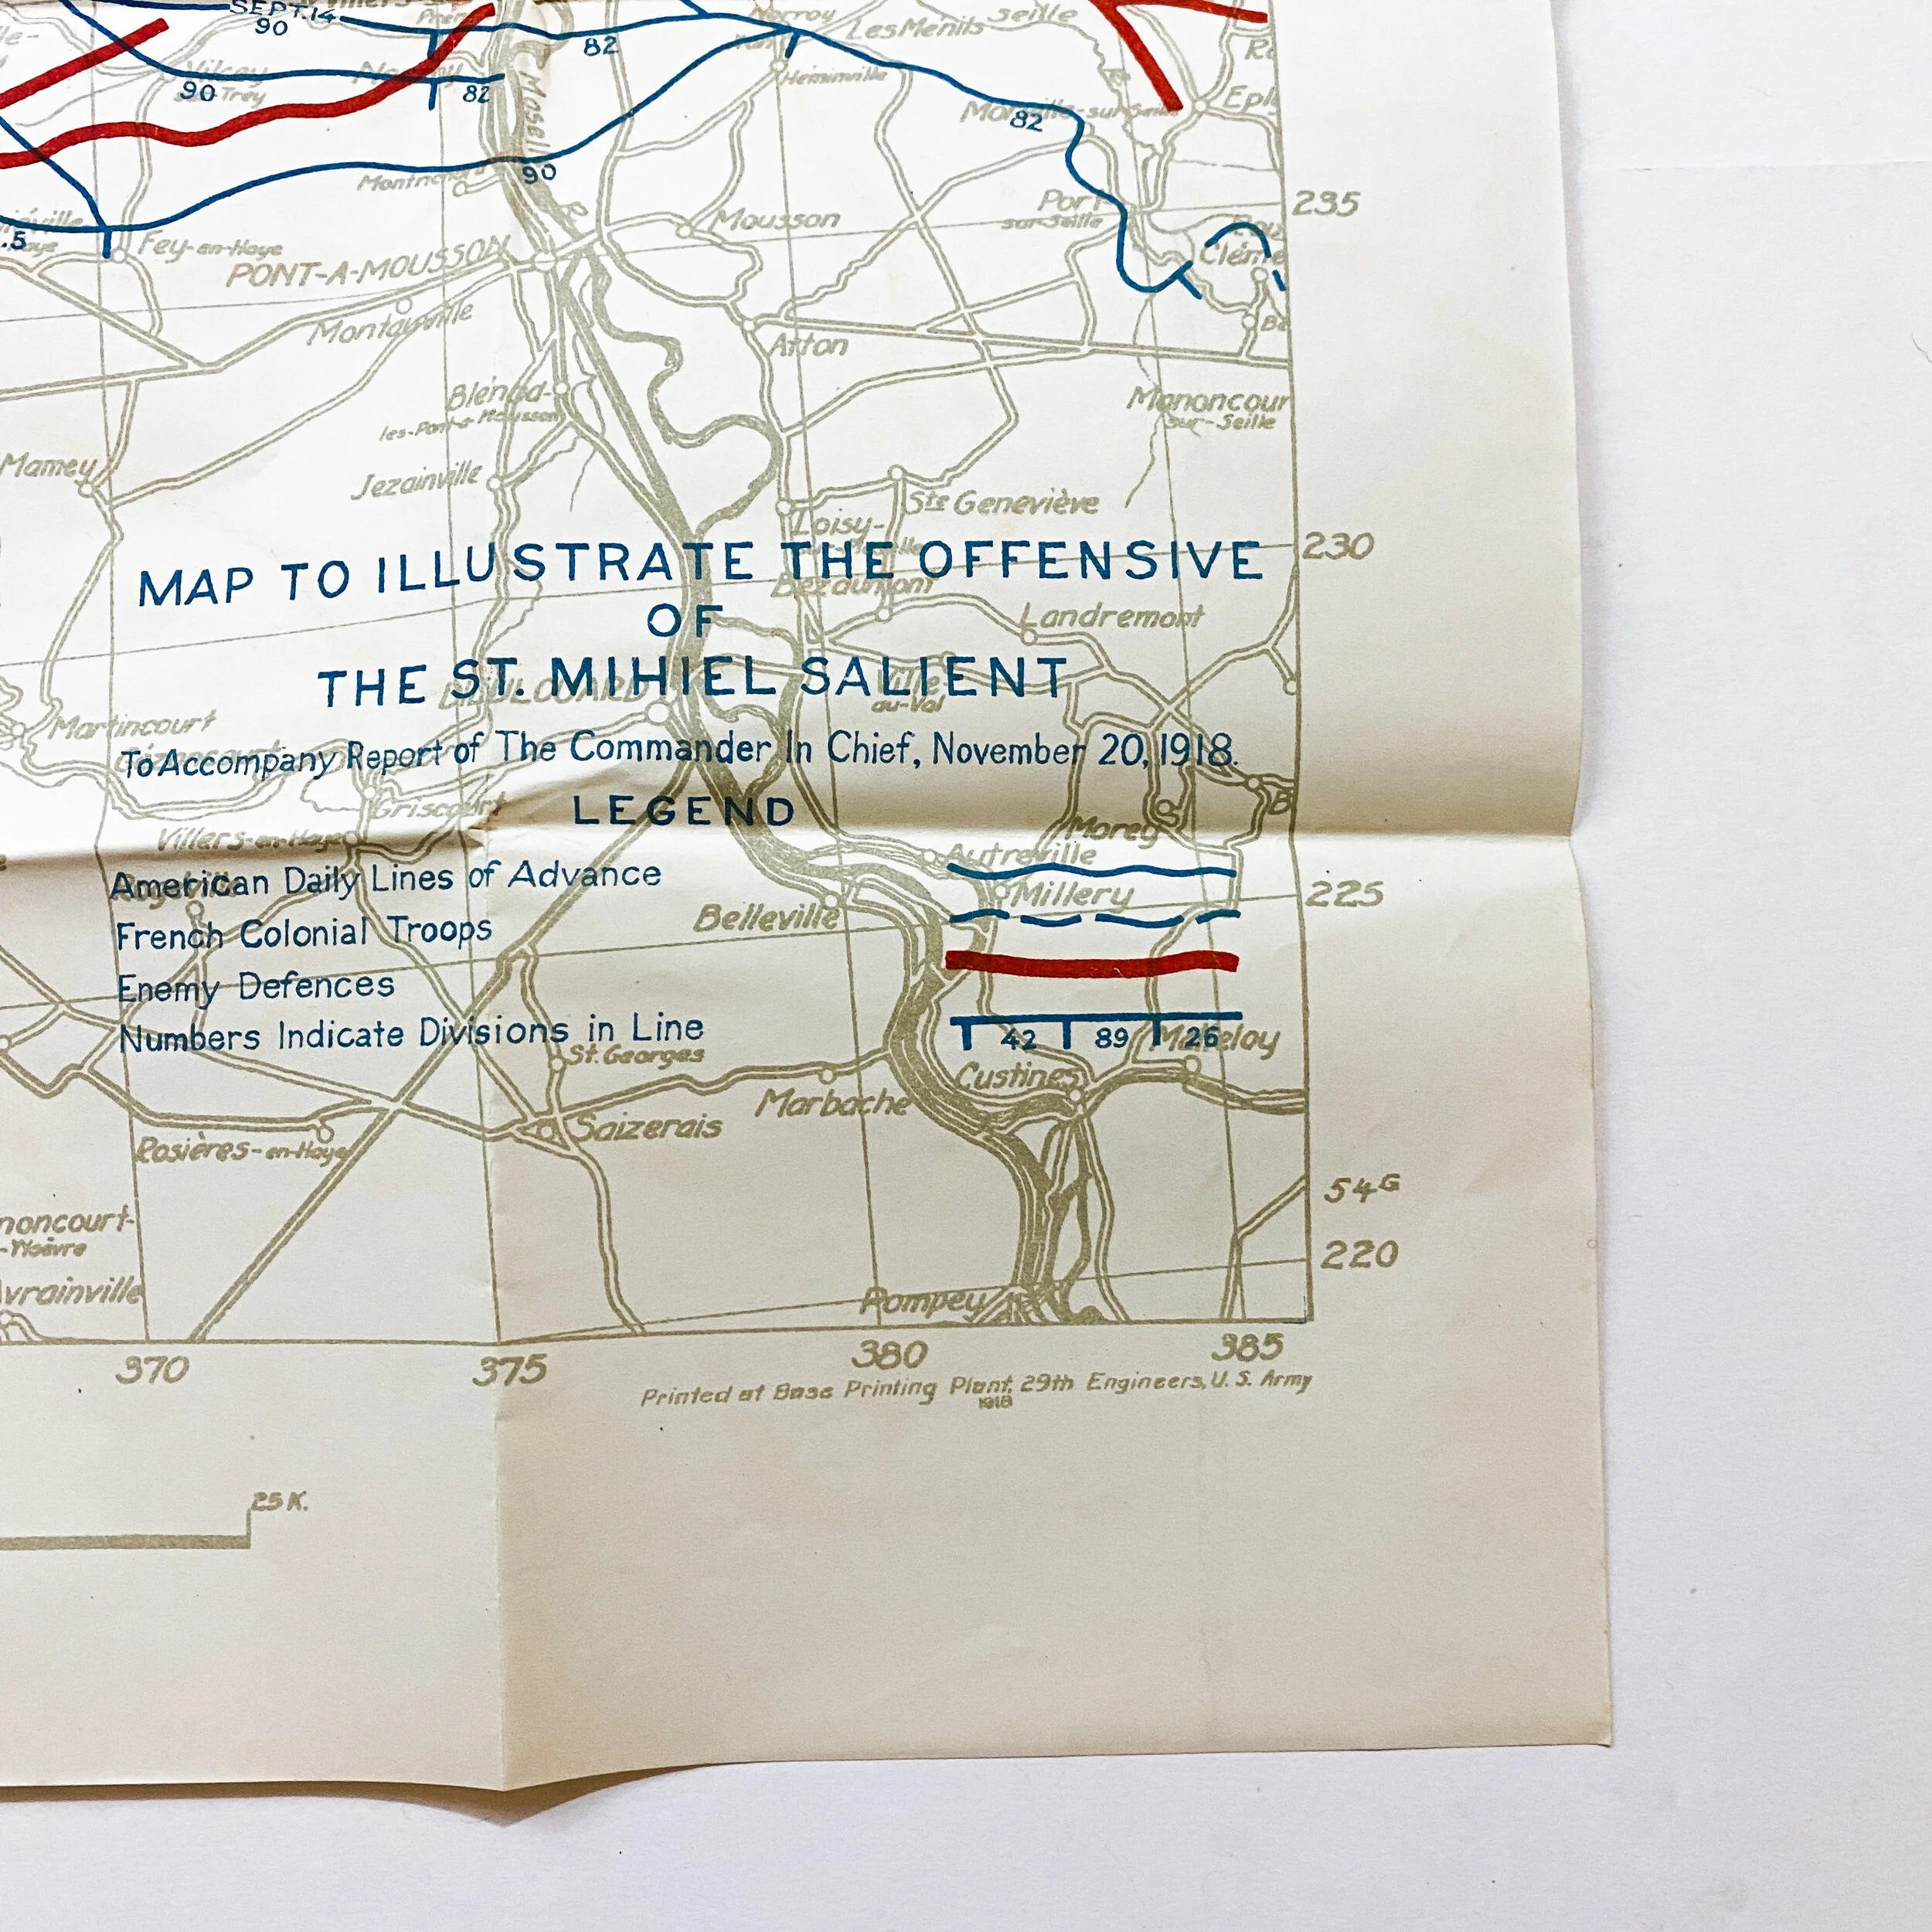 SEPT.14
90
82
Norroy
Les Menils
Seille
90
82
Heminville
Moselle
82
Epl
90
235
Mousson
Port
sur-Seille
.5
Fey-en-Haye
PONT-A-MOUSSON
Cléme
Montauville
Atton
Blénod-
les-Pont-a-Mousson
Mononcour
sur-Seille
Mamey
Jezainville
Ste Geneviève
Loisy-
230
MAP TO ILLUSTRATE THE OFFENSIVE
Bezaumont
OF
Landremont
THE ST. MIHIEL SALIENT
Ville-
au-Val
Martincourt
To Accompany Report of The Commander In Chief, November 20, 1918.
Griscourt
LEGEND
B
Villers-en-Haye
Morey
Autreville
American Daily Lines of Advance
Millery
225
Belleville
French Colonial Troops
Enemy Defences
Numbers Indicate Divisions in Line
42 89 26
St. Georges
Custines
Marbache
Saizerais
Rosières-en-Haye
54G
noncourt-
-Woëvre
220
vrainville
Pompey
370
375
380
385
Printed at Base Printing Plant, 29th Engineers, U. S. Army
1918
25 K.